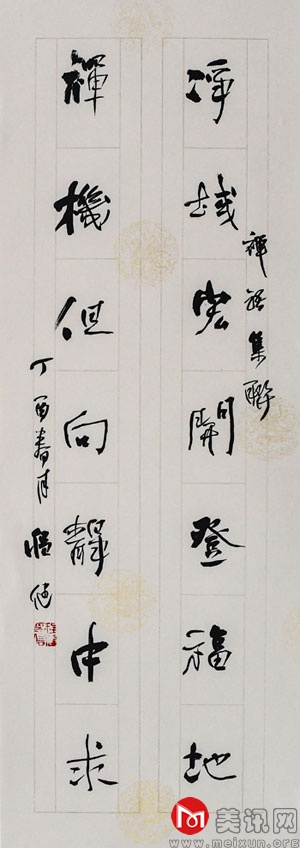 淨域宏開登福地
禪語集聯
禪機但向靜中求
丁酉春月
M 美讯网
www.meixun.org